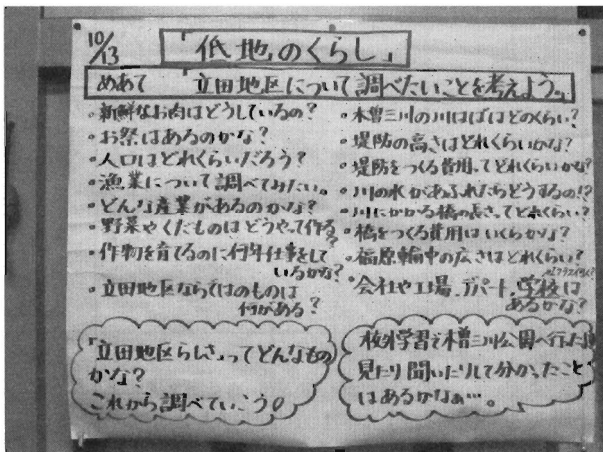 10/13 「低地のくらし」
めあて 「立田地区について調べたいことを考えよう。」
・新鮮なお肉はどうしているの？
・お祭はあるのかな？
・人口はどれくらいだろう？
・漁業について調べてみたい。
・どんな産業があるのかな？
・野菜やくだものはどうやって作る？
・作物を育てるのに何年仕事をして
いるかな？
・立田地区ならではのものは
何がある？
・木曽三川の川はばはどのくらい？
・堤防の高さはどれくらいかな？
・堤防をつくる費用ってどれくらいかな？
・川の水があふれたらどうするの!?
・川にかかる橋の長さってどれくらい？
・橋をつくる費用はいくらかな？
・福原輪中の広さはどれくらい？
・会社や工場、デパート、学校は
あるかな？
「立田地区らしさ」ってどんなもの
かな？
これから調べていこう！
校外学習で木曽三川公園へ行った時
見たり聞いたりして分かったこと
はあるかなぁ…。